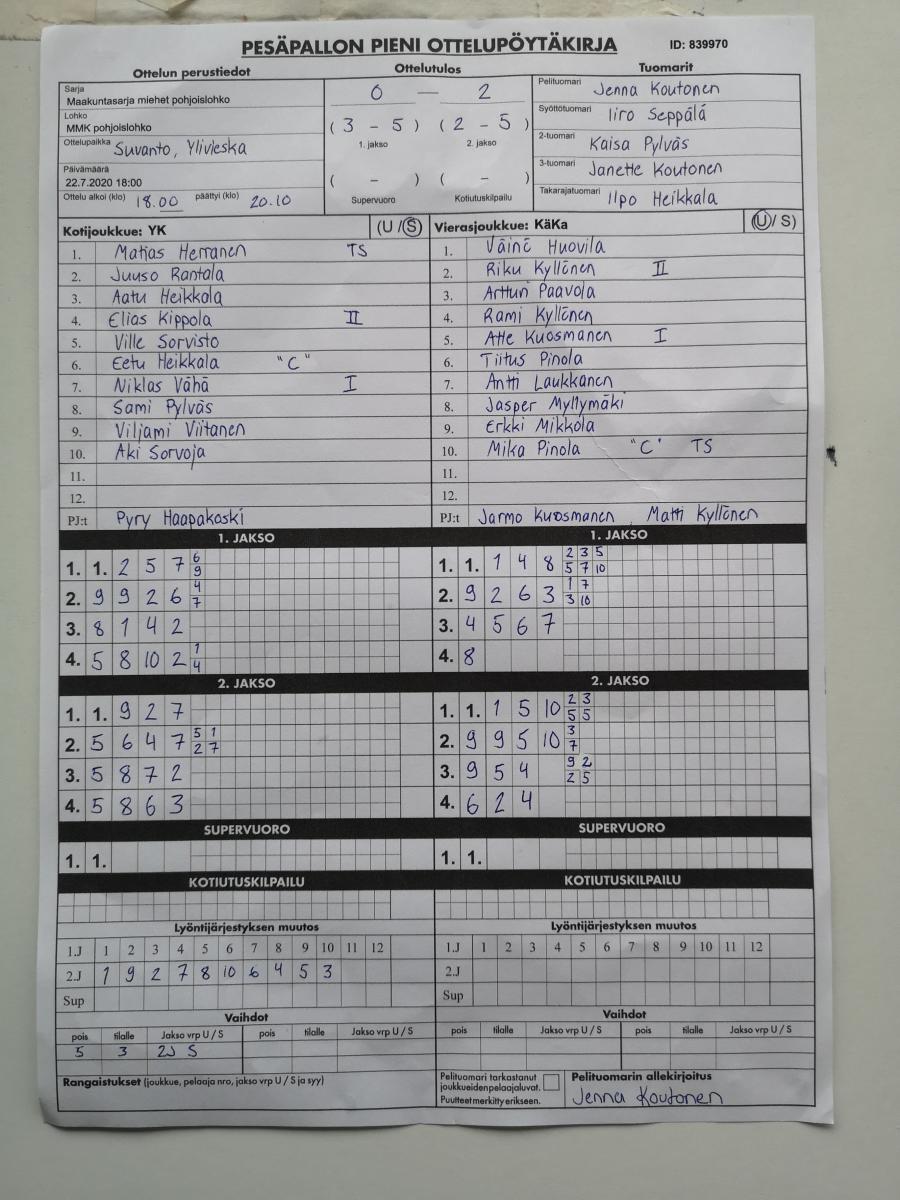 PESÄPALLON PIENI OTTELUPÖYTÄKIRJA ID: 839970
Ottelun perustiedot Ottelutulos Tuomarit
Sarja
Maakuntasarja miehet pohjoislohko
Lohko
MMK pohjoislohko
Ottelupaikka Suvanto, Ylivieska
Päivämäärä
22.7.2020 18:00
Ottelu alkoi (klo) 18.00 päättyi (klo) 20.10
0 — 2
( 3 - 5 ) ( 2 - 5 )
1. jakso 2. jakso
( - ) ( - )
Supervuoro Kotiutuskilpailu
Pelituomari Jenna Koutonen
Syöttötuomari Iiro Seppälä
2-tuomari Kaisa Pylväs
3-tuomari Janette Koutonen
Takarajatuomari Ilpo Heikkala
Kotijoukkue: YK (U / S)
1. Matias Herranen TS
2. Juuso Rantala
3. Aatu Heikkala
4. Elias Kippola II
5. Ville Sorvisto
6. Eetu Heikkala "C"
7. Niklas Vähä I
8. Sami Pylväs
9. Viljami Viitanen
10. Aki Sorvoja
11.
12.
PJ:t Pyry Haapakoski
Vierasjoukkue: KäKa (U / S)
1. Väinö Huovila
2. Riku Kyllönen II
3. Artturi Paavola
4. Rami Kyllönen
5. Atte Kuosmanen I
6. Tiitus Pinola
7. Antti Laukkanen
8. Jasper Myllymäki
9. Erkki Mikkola
10. Mika Pinola "C" TS
11.
12.
PJ:t Jarmo Kuosmanen, Matti Kyllönen
1. JAKSO
1. 1. 2 5 7 6
9
2. 9 9 2 6 4
7
3. 8 1 4 2
4. 5 8 10 2 1
4
1. JAKSO
1. 1. 1 4 8 2 3 5
5 7 10
2. 9 2 6 3 1 7
3 10
3. 4 5 6 7
4. 8
2. JAKSO
1. 1. 9 2 7
2. 5 6 4 7 5 1
2 7
3. 5 8 7 2
4. 5 8 6 3
2. JAKSO
1. 1. 1 5 10 2 3
5 5
2. 9 9 5 10 3
7
3. 9 5 4 9 2
2 5
4. 6 2 4
SUPERVUORO
1. 1.
SUPERVUORO
1. 1.
KOTIUTUSKILPAILU
KOTIUTUSKILPAILU
Lyöntijärjestyksen muutos
1.J 1 2 3 4 5 6 7 8 9 10 11 12
2.J 1 9 2 7 8 10 6 4 5 3
Sup
Lyöntijärjestyksen muutos
1.J 1 2 3 4 5 6 7 8 9 10 11 12
2.J
Sup
Vaihdot
pois tilalle Jakso vrp U / S pois tilalle Jakso vrp U / S
5 3 2J S
Vaihdot
pois tilalle Jakso vrp U / S pois tilalle Jakso vrp U / S
Rangaistukset (joukkue, pelaaja nro, jakso vrp U / S ja syy)
Pelituomari tarkastanut
joukkueiden pelaajaluvat.
Puutteet merkitty erikseen.
Pelituomarin allekirjoitus
Jenna Koutonen